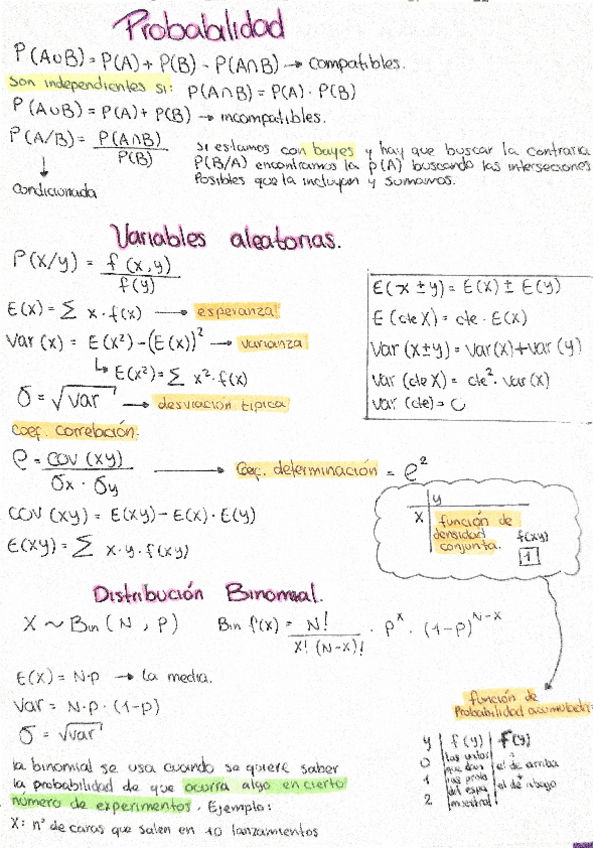 Probabilidad
P(A∪B) = P(A) + P(B) - P(A∩B) → compatibles.
Son independientes si: P(A∩B) = P(A) · P(B)
P(A∪B) = P(A) + P(B) → incompatibles.
P(A/B) = P(A∩B) / P(B)
↓
Condicionada
Si estamos con bayes y hay que buscar la contraria
P(B/A) encontramos la p(A) buscando las interseciones
Posibles que la incluyan y sumamos.
Variables aleatorias.
P(X/y) = f(x,y) / f(y)
E(x) = Σ x·f(x) → esperanza
Var(x) = E(x²) - (E(x))² → varianza
↳ E(x²) = Σ x²·f(x)
σ = √var → desviación típica
E(x ± y) = E(x) ± E(y)
E(cte X) = cte · E(x)
Var(x±y) = Var(x) + Var(y)
Var(cte X) = cte² · Var(x)
Var(cte) = 0
Coef. correlación:
ρ = COV(xy) / σx · σy → Coef. determinación = ρ²
COV(xy) = E(xy) - E(x)·E(y)
E(xy) = Σ x·y·f(xy)
y
X función de
densidad
conjunta. f(xy)
1
Distribución Binomial.
X ~ Bin(N, P) Bin f(x) = N! / X!(N-x)! · P^x · (1-P)^N-x
E(x) = N·P → la media.
Var = N·P·(1-P)
σ = √var
función de
Probabilidad acumulada:
y f(y) F(y)
0 el de arriba
1 el de abajo
2
la binomial se usa cuando se quiere saber
la probabilidad de que ocurra algo en cierto
número de experimentos. Ejemplo:
X: nº de caras que salen en 10 lanzamientos